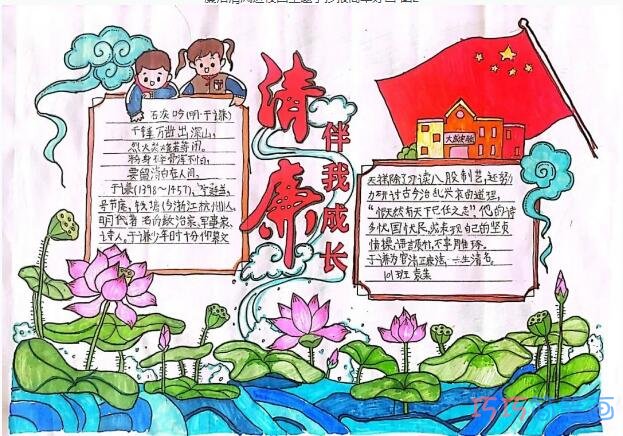 清廉
伴我成长
石灰吟(明·于谦)
千锤万凿出深山,
烈火焚烧若等闲。
粉身碎骨浑不怕,
要留清白在人间。
于谦(1398~1457),字廷益,
号节庵,钱塘(今浙江杭州)人,
明代著名的政治家、军事家、
诗人,于谦少年时十分仰慕文
天祥除了习读八股制艺,还努
力研讨古今治乱兴衰的道理,
"慨然有天下己任之志"他的诗
多忧国忧民,或表现自己的坚贞
情操,语言质朴,不事雕琢。
于谦为官清正廉洁,一生清名。
101班
巧巧